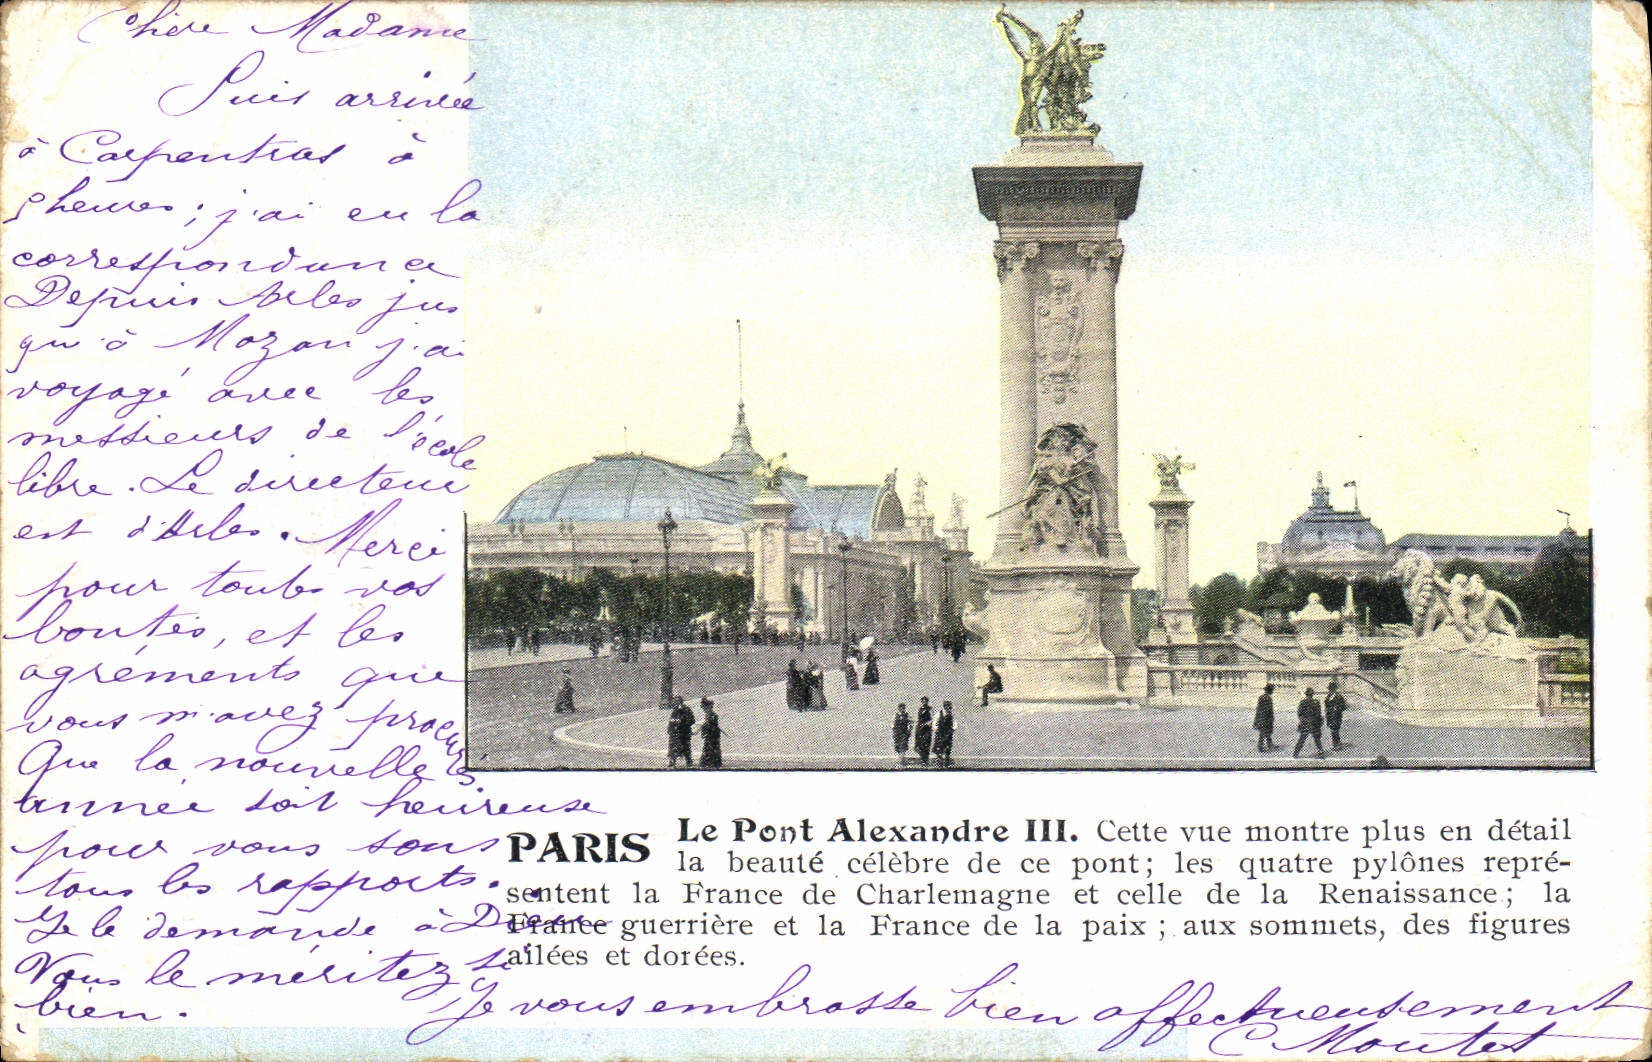 Chère Madame
Suis arrivée
à Carpentras à
5 heures ; j'ai eu la
correspondance
Depuis Arles jus
qu'à Mozan j'ai
voyagé avec les
messieurs de l'école
libre. Le directeur
est d'Arles. Merci
pour toutes vos
bontés, et les
agréments que
vous m'avez procurés.
Que la nouvelle
année soit heureuse
pour vous sous
tous les rapports.
Je le demande à Dieu
Vous le méritez si
bien.
Je vous embrasse bien affectueusement
C Moutet
PARIS Le Pont Alexandre III. Cette vue montre plus en détail
la beauté célèbre de ce pont; les quatre pylônes repré-
sentent la France de Charlemagne et celle de la Renaissance; la
France guerrière et la France de la paix; aux sommets, des figures
ailées et dorées.